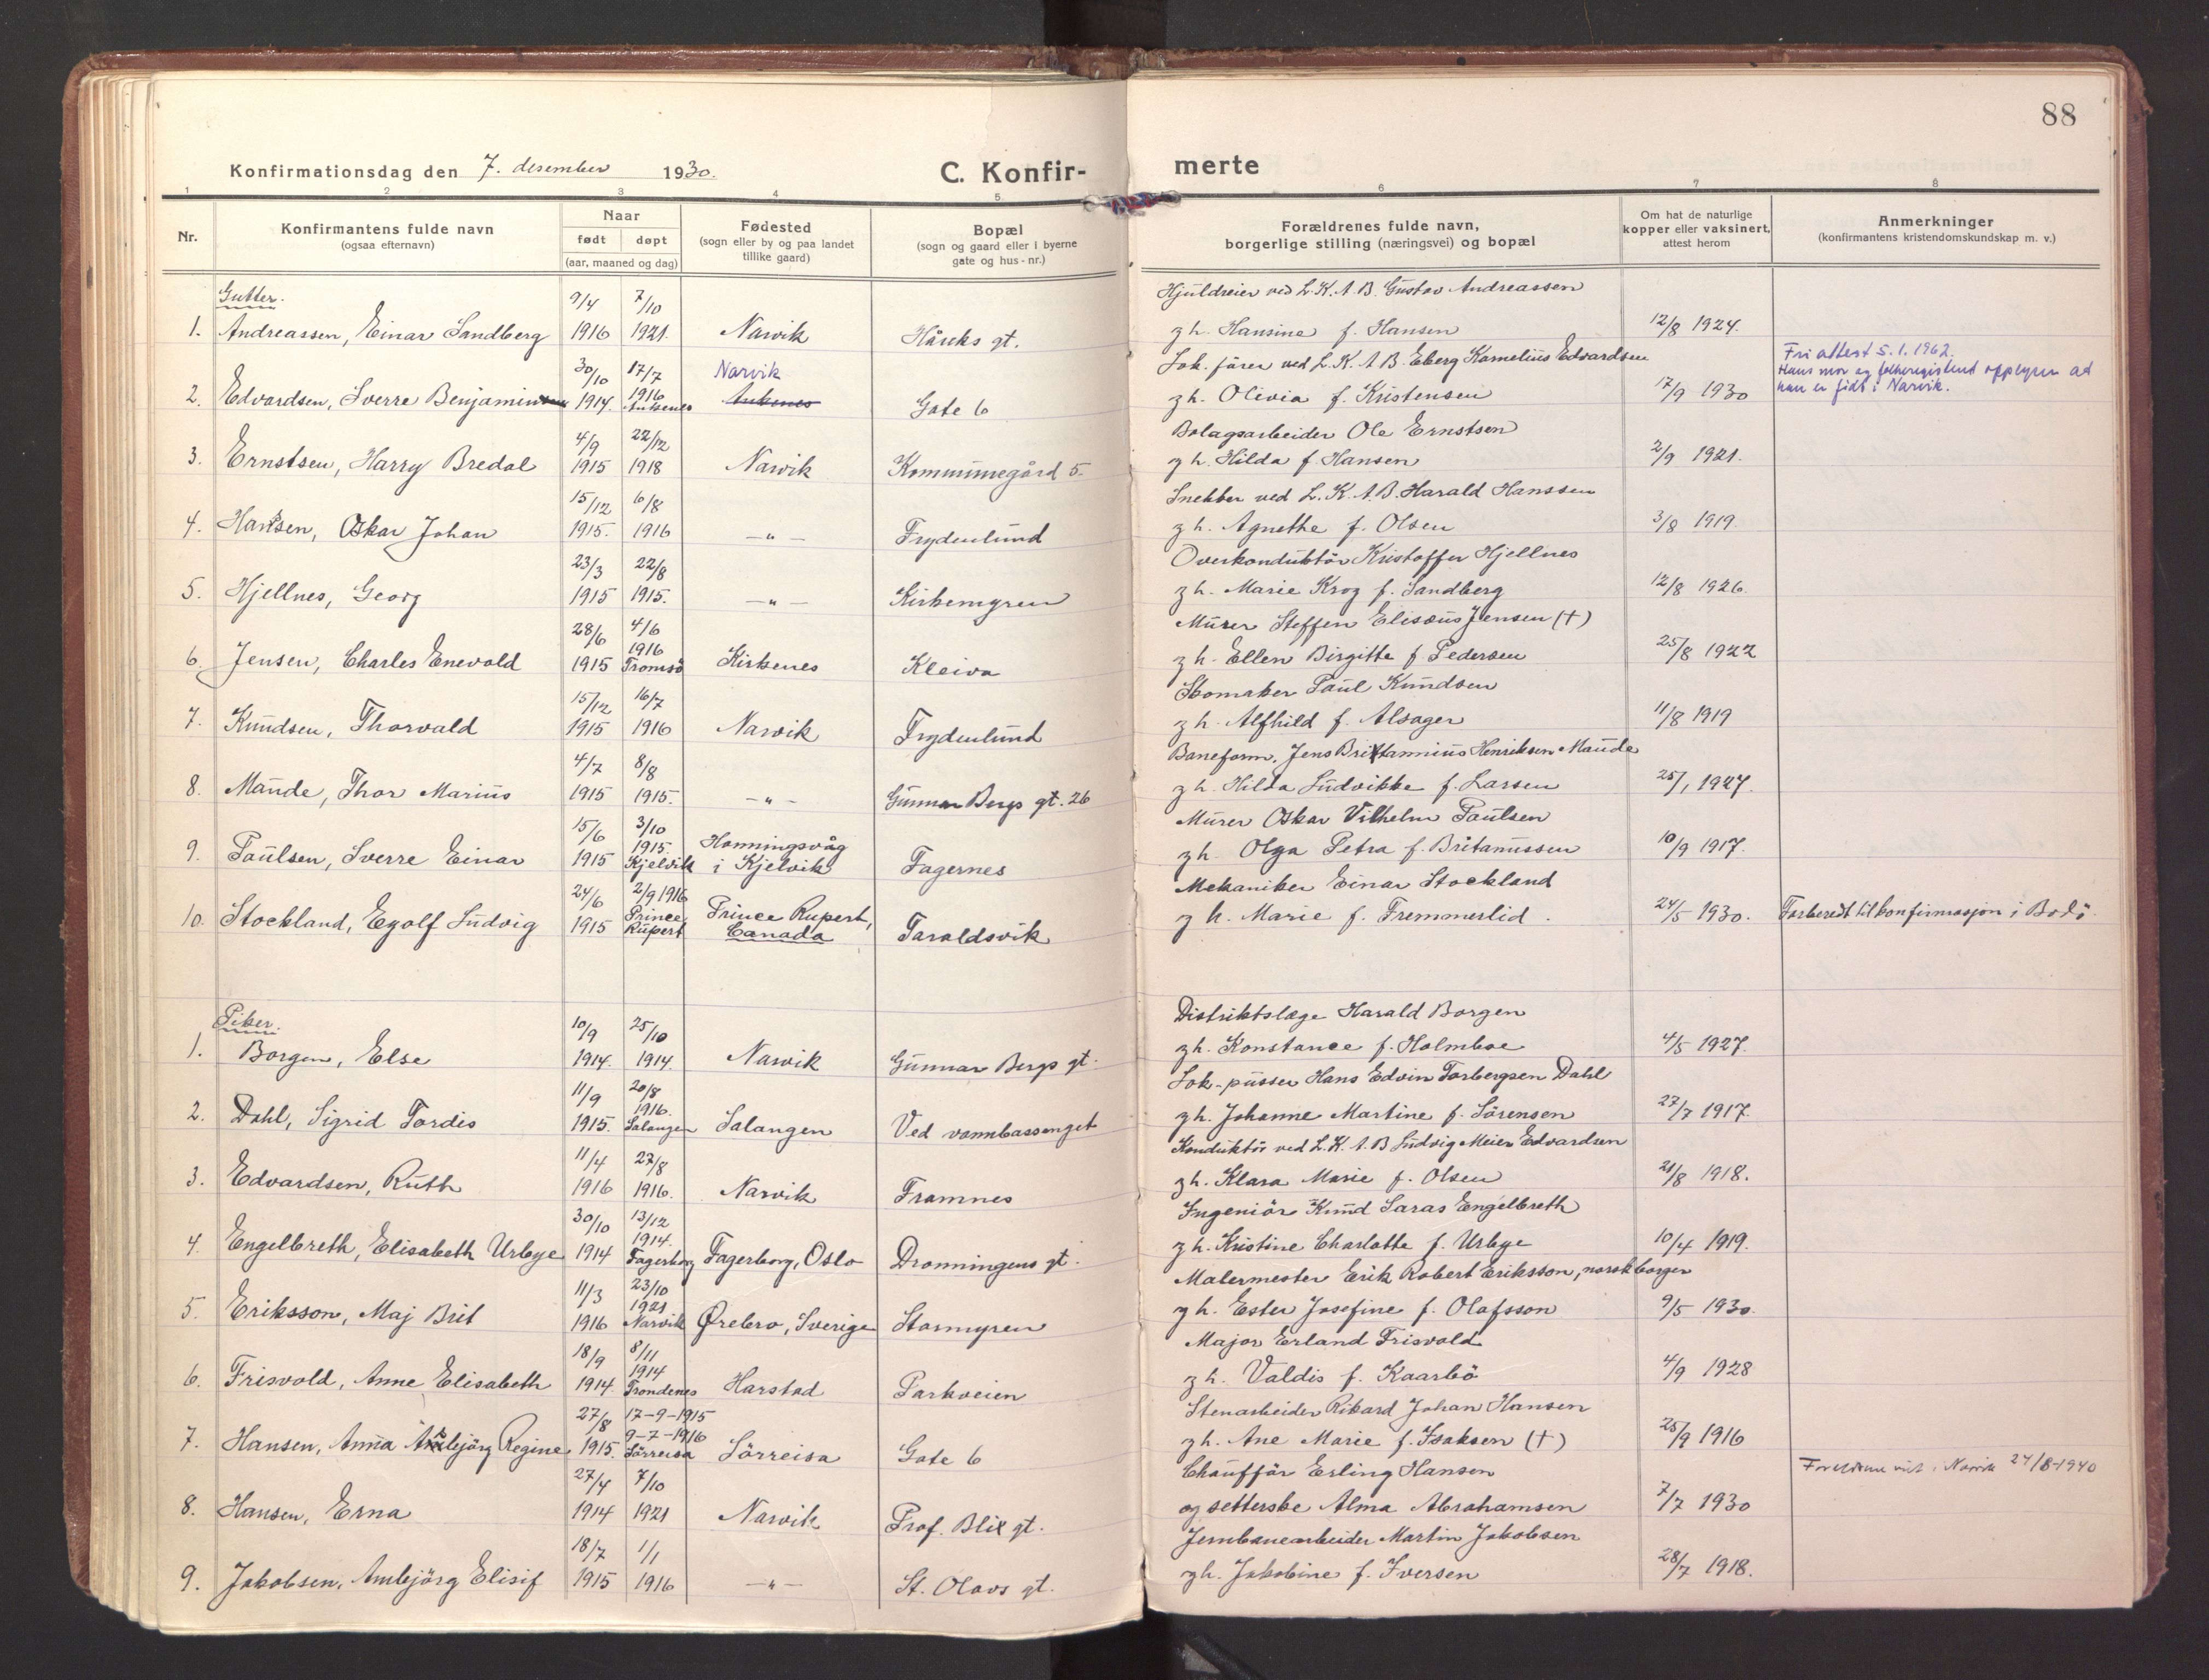 88
Konfirmationsdag den 7. desember 1930.
C. Konfirmerte
1 2 3 4 5. 6 7 8
Nr.
Konfirmantens fulde navn
(ogsaa efternavn)
Naar
født døpt
(aar, maaned og dag)
Fødested
(sogn eller by og paa landet
tillike gaard)
Bopæl
(sogn og gaard eller i byerne
gate og hus-nr.)
Forældrenes fulde navn,
borgerlige stilling (næringsvei) og bopæl
Om hat de naturlige
kopper eller vaksinert,
attest herom
Anmerkninger
(konfirmantens kristendomskundskap m. v.)
Gutter.
9/4 7/10 Hjuldreier ved L.K.A.B. Gustav Andreassen
1. Andreassen, Einar Sandberg 1916 1921. Narvik Håreks gt. g h. Hansine f. Hansen 12/8 1924.
30/10 17/7 Narvik Lok. fører ved L.K.A.B. Eberg Kornelius Edvardsen
2. Edvardsen, Sverre Benjamin 1914. 1916 Ankenes Ankenes Gate 6 g h. Olivia f. Kristensen 17/9 1930
Fri attest 5.1.1962.
Hans mor og folkeregisteret opplyser at
han er født i Narvik.
4/9 22/12 Bolagsarbeider Ole Ernstsen
3. Ernstsen, Harry Bredal 1915 1918 Narvik Kommunegård 5. g h. Hilda f. Hansen 2/9 1921.
15/12 6/8 Snekker ved L.K.A.B. Harald Hanssen
4. Hanssen, Oskar Johan 1915. 1916 —"— Frydenlund g h. Agnethe f. Olsen 3/8 1919.
23/3 22/8 Overkonduktör Kristoffer Hjellnes
5. Hjellnes, Georg 1915 1915. —"— Kirkemyren g h. Marie Krog f. Sandberg 12/8 1926.
28/6 4/6 Murer Steffen Elisæus Jensen (†)
6. Jensen, Charles Enevold 1915 1916 Tromsö Kirkenes Kleiva g h. Ellen Birgitte f. Pedersen 25/8 1922
15/12 16/7 Skomaker Paul Knudsen
7. Knudsen, Thorvald 1915 1916 Narvik Frydenlund g h. Alfhild f. Alsager 11/8 1919
4/7 8/8 Baneform. Jens Britannius Henriksen Maude
8. Maude, Thor Marius 1915 1915. —"— Gunnar Bergs gt. 26 g h. Hilda Ludvikke f. Larsen 25/1 1927.
15/6 3/10 Murer Oskar Vilhelm Paulsen
9. Paulsen, Sverre Einar 1915 1915. Kjelvik Honningsvåg i Kjelvik Fagernes g h. Olga Petra f. Britanussen 10/9 1917.
24/6 2/9 1916 Mekaniker Einar Stockland
10. Stockland, Egolf Ludvig 1915 Prince Rupert Prince Rupert, Canada Taraldsvik g h. Marie f. Fremmerlid. 24/5 1930. Forberedt til konfirmasjon i Bodö.
Piker.
10/9 25/10 Distriktslæge Harald Borgen
1. Borgen, Else 1914. 1914. Narvik Gunnar Bergs gt. g h. Konstance f. Holmboe 4/5 1927.
11/9 20/8 Lok-pusser Hans Edvin Torbergsen Dahl
2. Dahl, Sigrid Tordis 1915. 1916. Salangen Salangen Ved vannbassenget g h. Johanne Martine f. Sörensen 27/7 1917.
11/4 27/8 Konduktör ved L.K.A.B Ludvig Meier Edvardsen
3. Edvardsen, Ruth 1916 1916. Narvik Framnes g h. Klara Marie f. Olsen 21/8 1918.
30/10 13/12 Ingeniör Knud Saras Engelbreth
4. Engelbreth, Elisabeth Urbye 1914 1914. Fagerborg Fagerborg, Oslo Dronningens gt. g h. Kristine Charlotte f. Urbye 10/4 1919.
11/3 23/10 Malermester Erik Robert Eriksson, norsk borger
5. Eriksson, Maj Brit 1916 1921 Narvik Ørebro, Sverige Stormyren g h. Ester Josefine f. Olofsson 9/5 1930.
18/9 8/11 Major Erland Frisvold
6. Frisvold, Anne Elisabeth 1914 1914 Trondenes Harstad Parkveien g h. Valdis f. Kaarbö 4/9 1928
27/8 17-9-1915 Stenarbeider Rikard Johan Hansen
7. Hansen, Anna Regine 1915. 9-7-1916 Sörreisa Sörreisa Gate 6 g h. Ane Marie f. Isaksen (†) 25/9 1916
27/4 7/10 Chaufför Erling Hansen
8. Hansen, Erna 1914 1921 Narvik Prof. Blix gt. og setterske Alma Abrahamsen 7/7 1930
Foreldrene viet i Narvik 24/8-1940
18/7 1/1 Jernbanearbeider Martin Jakobsen
9. Jakobsen, Annbjörg Elisif 1915 1916 —"— St. Olavs gt. g h. Jakobine f. Iversen 28/7 1918.